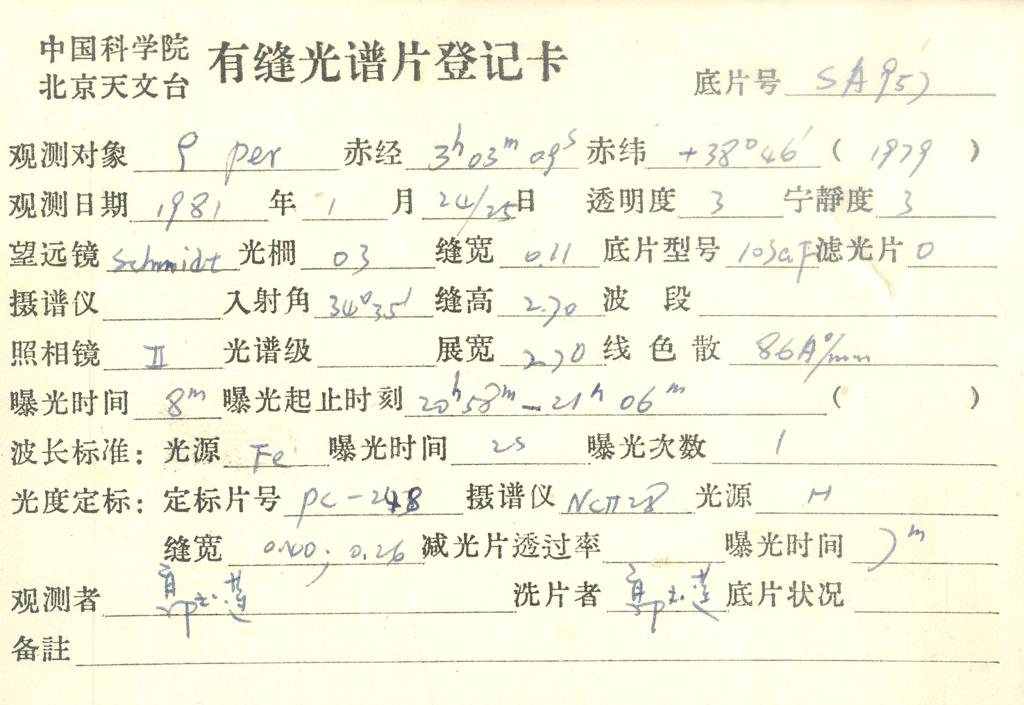 中国科学院
北京天文台
有缝光谱片登记卡
底片号 SA957
观测对象 ρ per 赤经 3ʰ03ᵐ09ˢ 赤纬 +38°46′ ( 1979 )
观测日期 1981 年 1 月 24/25 日 透明度 3 宁静度 3
望远镜 Schmidt 光栅 03 缝宽 0.11 底片型号 103aF 滤光片 0
摄谱仪 入射角 34°35′ 缝高 2.70 波段
照相镜 II 光谱级 展宽 2.70 线色散 86Å/mm
曝光时间 8ᵐ 曝光起止时刻 20ʰ58ᵐ—21ʰ06ᵐ ( )
波长标准: 光源 Fe 曝光时间 2s 曝光次数 1
光度定标: 定标片号 pc-248 摄谱仪 光源 H
缝宽 0.40; 0.26 减光片透过率 曝光时间 7ᵐ
观测者 郭玉莲 洗片者 郭玉莲 底片状况
备註